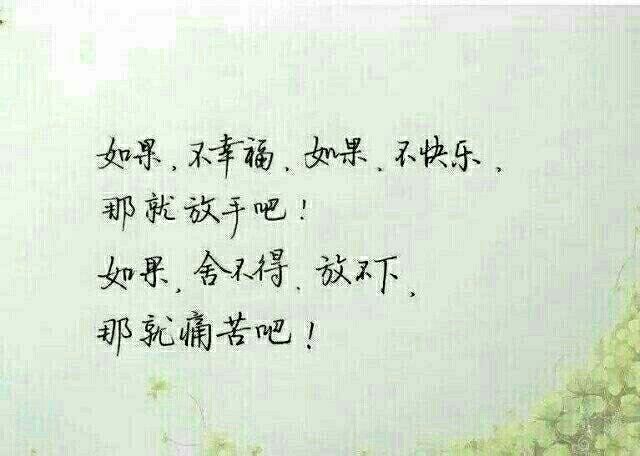 如果，不幸福，如果，不快乐，
那就放手吧！
如果，舍不得、放不下，
那就痛苦吧！